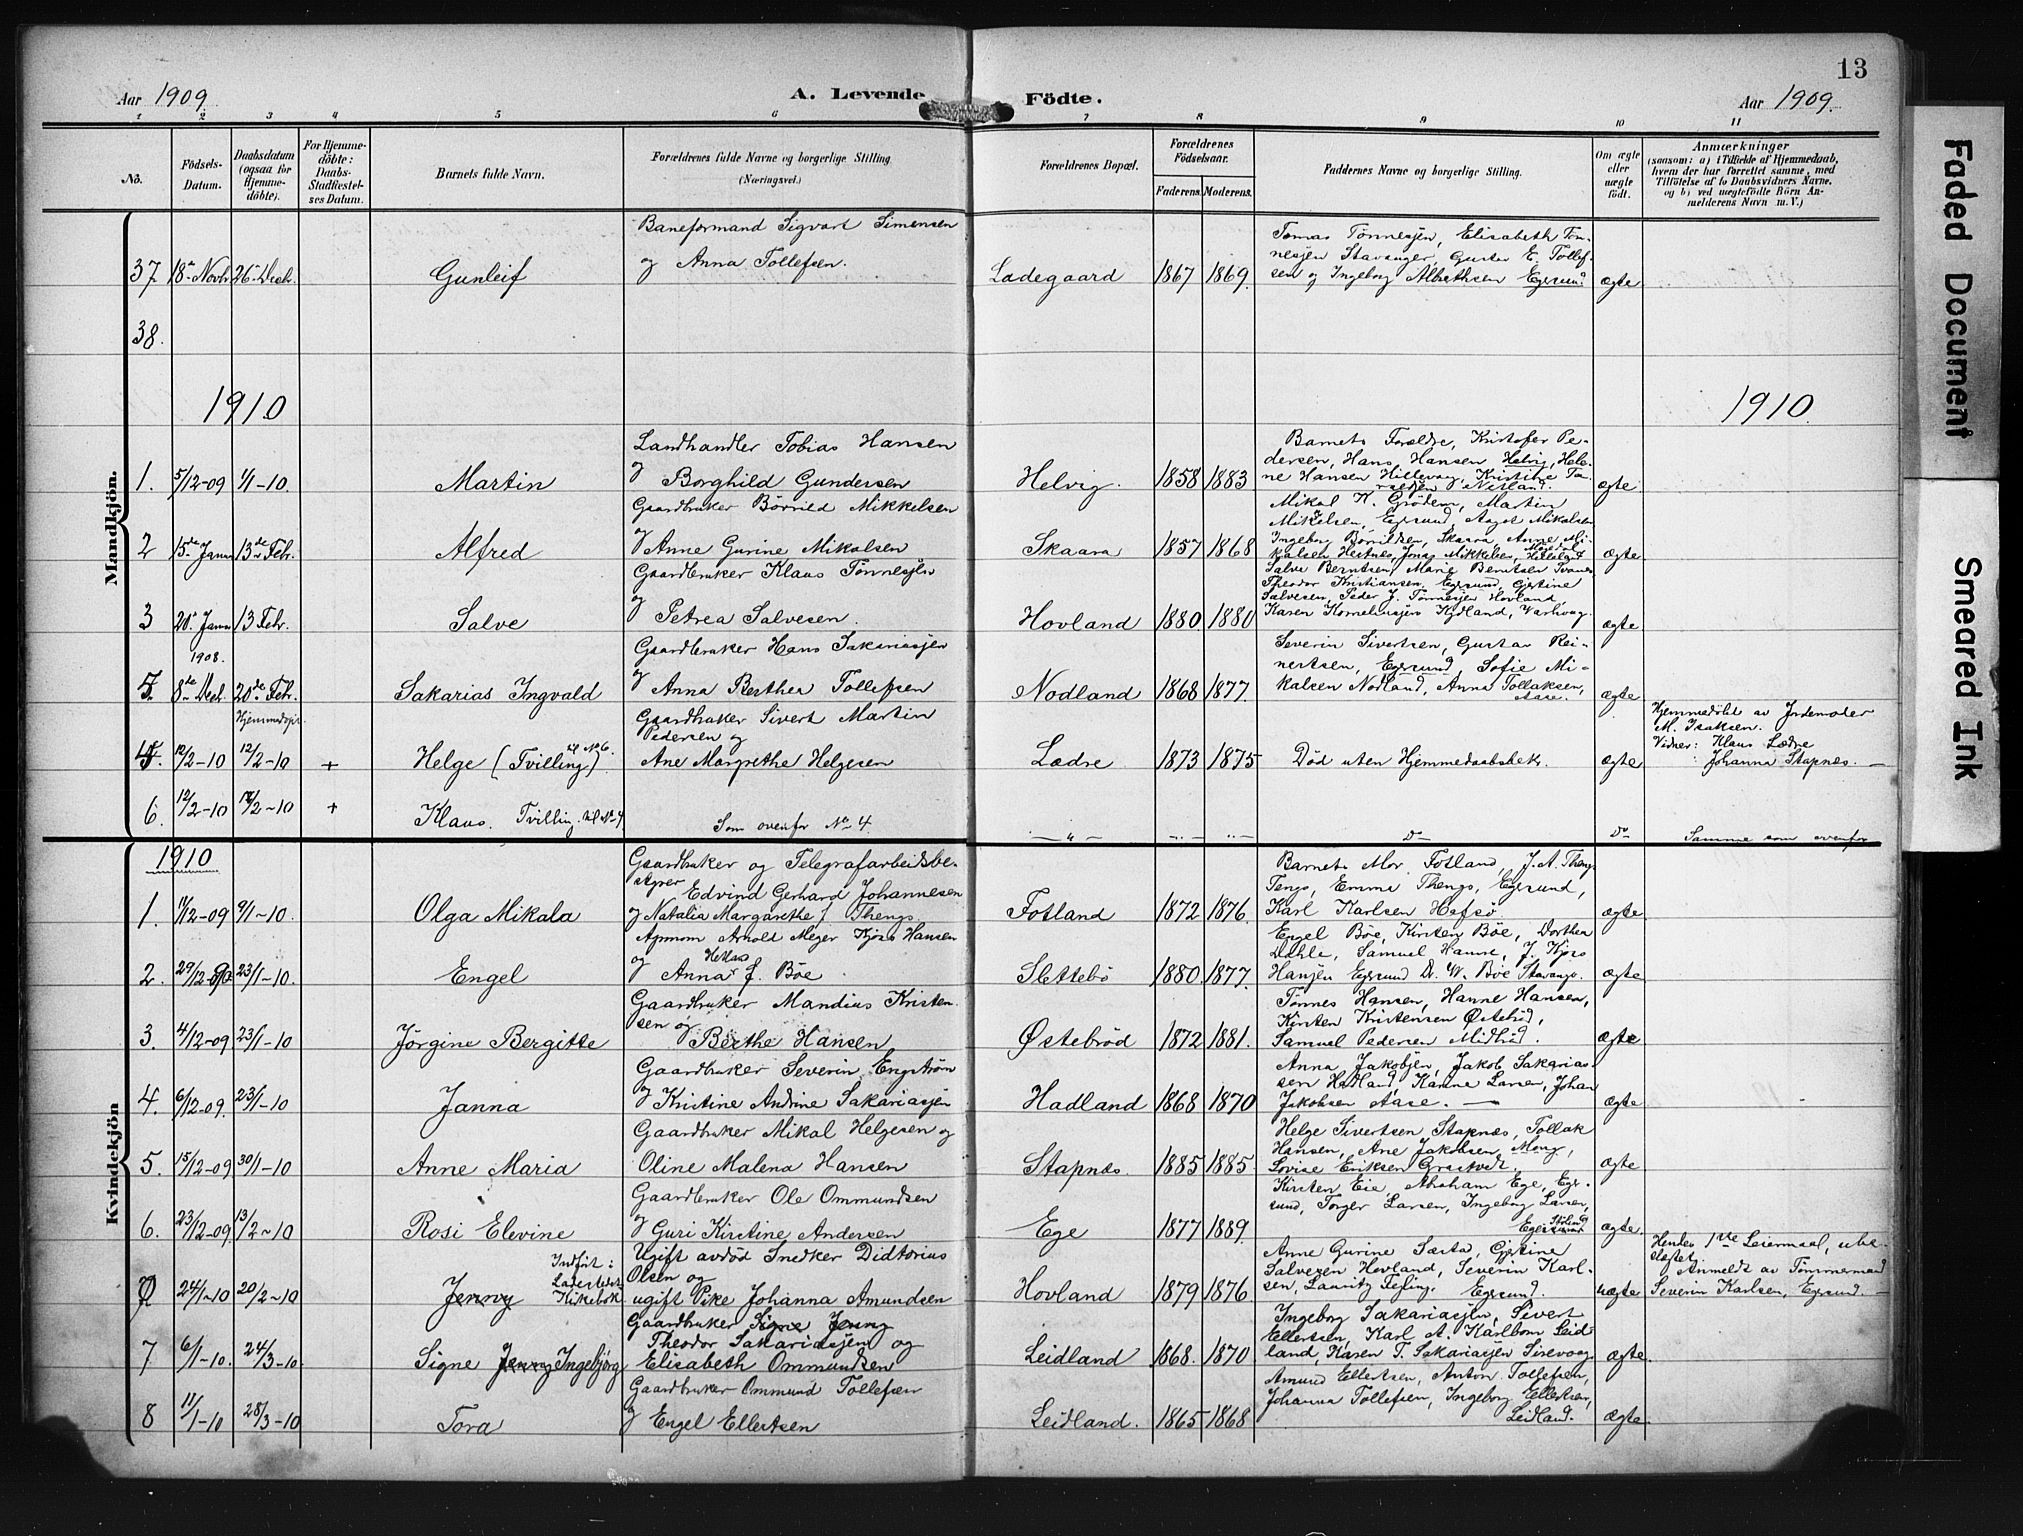 13
Aar 1909.
A. Levende Födte.
Aar 1909.
1 2 3 4 5 6 7 8 9 10 11
No.
Födsels-
Datum.
Daabsdatum
(ogsaa for
Hjemme-
döbte).
For Hjemme-
döbte:
Daabs-
Stadfæstel-
ses Datum.
Barnets fulde Navn.
Forældrenes fulde Navne og borgerlige Stilling.
(Næringsvei.)
Forældrenes Bopæl.
Forældrenes
Födselsaar.
Faderens.
Moderens.
Faddernes Navne og borgerlige Stilling.
Om ægte
eller
uægte
födt.
Anmærkninger
(saasom: a) i Tilfælde af Hjemmedaab,
hvem der har forrettet samme, med
Tilföielse af to Daabsvidners Navne.
og b) ved uægtefödte Börn An-
melderens Navn m. V.)
Mandkjön.
Baneformand Sigvart Simensen
og Anna Tollefsen.
37 18de Novbr 26-Decbr. Gunleif
Ladegaard 1867 1869.
Tomas Tönnesjen, Elisabeth Tön-
nesjen Stavanger, Gustav E. Tollef-
sen og Ingeborg Albrethsen Egersund
ægte
38.
1910
1910.
1. 5/12-09 1/1-10. Martin
Landhandler Tobias Hansen
og Borghild Gundersen
Helvig. 1858 1883
Barnets Forældre, Kristofer Pe-
dersen, Hans Hansen Helvig, Hele-
ne Hansen Hillevaag, Kristine
Nesland.
ægte
2 15de Janr 13de Febr. Alfred
Gaardbruker Börrild Mikkelsen
og Anne Gurine Mikalsen
Skaara 1857 1868
Mikal K. Grödem, Martin
Mikalsen, Egersund, Aagot Mikalsen
Ingeborg Börrildsen, Skaara, Anne Mi-
kalsen Hestnes, Jonas Mikkelsen
ægte
3 20. Janr 13 Febr. Salve
Gaardbruker Klaus Tönnesjen
og Petrea Salvesen.
Hovland 1880 1880
Salve Berntsen, Marie Berntsen Svanes
Theodor Kristiansen, Egersund, Gjertine
Salvesen, Peder J. Tönnesjen Hovland,
Karen Kornelinsjen Kydland, Varhoug.
ægte
1908.
5. 8de Decbr. 20de Febr. Sakarias Ingvald
Gaardbruker Hans Sakariasjen
og Anna Berthea Tollefsen
Nodland 1868 1877.
Severin Sivertsen, Gustav Rei-
nertsen, Egersund, Sofie Mi-
kalsen Nodland, Anna Tollaksen,
Aase.
ægte
Hjemmedaabs
4. 12/2-10 12/2-10 + Helge (Tvilling) til No 6.
Gaardbruker Sivert Martin
Pedersen og
Ane Margrethe Helgesen
Lædre 1873 1875
Död uten Hjemmedaabsbek.
ægte
Hjemmedöbt av Jordemoder
M. Isaksen.
Vidner: Klaus Lædre
Johanna Stapnes. —
6. 12/2-10 12/2-10 + Klaus. Tvilling. til No 4.
Som ovenfor No 4.
— " — —"— —"— Do Do
Samme som ovenfor
Kvindekjön
1910
1. 11/12-09 9/1-10. Olga Mikala
Gaardbruker og Telegrafarbeidsbe-
styrer Edvind Gerhard Johannesen
og Natalia Margarethe f. Thengs
Fotland 1872 1876.
Barnets Mor Fotland, J. A. Thengs
Tengs, Emma Thengs, Egersund,
Karl Karlsen Hafsö.
ægte
2. 29/12-09 23/1-10. Engel
Apnom Arnold Mejer Kjos Hansen
og Anna f. Böe
Slettebö 1880. 1877.
Engel Böe, Kirsten Böe, Dorthea
Dahle, Samuel Hanne, J. Kjos
Hansen Egersund Dr. W. Böe Stavanger.
ægte
3. 4/12-09 23/1-10 Jörgine Bergitte
Gaardbruker Mandius Kristen-
sen og
Berthe Hansen
Østebröd 1872 1881.
Tönnes Hansen, Hanne Hansen,
Kirsten Kristensen Östebröd,
Samuel Pedersen Midbröd.
ægte
4. 6/12-09. 23/1-10 Janna
Gaardbruker Severin Engström
og Kristine Andrine Sakariasjen
Hadland 1868 1870
Anna Jakobsen, Jakob Sakarias-
sen Hadland, Karine Larsen, Johan
Jakobsen Aase. —
ægte
5. 15/12-09 30/1-10 Anne Maria
Gaardbruker Mikal Helgesen og
Oline Malena Hansen
Stapnæs. 1885 1885
Helge Sivertsen Stapnæs, Tollak
Hansen, Ane Jakobsen Mong,
Lovise Eriksen Grastvedt.
ægte
6. 23/12-09. 13/2-10 Rosi Elevine
Gaardbruker Ole Ommundsen
og Guri Kirstine Andersen
Ege 1877 1889.
Kirsten Eie, Abraham Ege, Eger-
sund, Torger Larsen, Ingeborg Larsen,
ægte
24/1-10 20/2-10 Jenny
Indfört i
Kirkebok
Ugift avdöd Snedker Didtorius
Olsen og
ugift Pike Johanna Amundsen
Hovland 1879 1876
Anne Gurine Sæstø, Gjertine
Salvesen Hovland, Severin Karl-
sen, Lauritz Feyling. Egersund.
uægte
Hendes 1ste Leiermaal, ube-
slegtet.
Anmeldt av Tömmermand
Severin Karlsen, Egersund. —
7 6/1-10. 24/3-10. Signe Jenny Ingebjörg
Gaardbruker Signe Jenny
Theodor Sakariasjen og
Elisabeth Ommundsen
Leidland 1868. 1870
Ingeborg Sakariasjen, Sivert
Ellertsen, Karl A. Karlbom Leid-
land, Karen T. Sakariasjen Sirevaag.
ægte.
8 11/1-10 28/3-10 Tora
Gaardbruker Ommund Tollefsen
og Engel Ellertsen
Leidland. 1865 1868
Amund Ellertsen, Anton Tollefsen,
Johanna Tollefsen, Ingeborg Ellertsen,
Leidland.
ægte
Faded Document
Smeared Ink